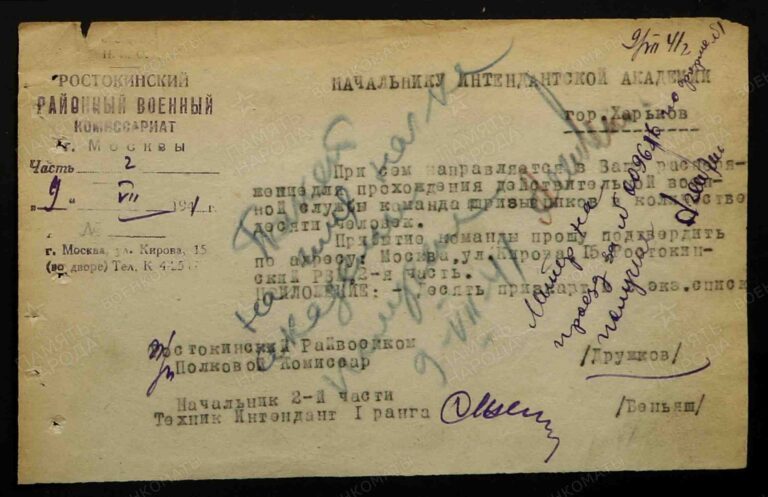 9/VII 41г
РОСТОКИНСКИЙ
РАЙОННЫЙ ВОЕННЫЙ
КОМИССАРИАТ
г. Москвы
Часть 2
"9" VII 1941 г.
№
г. Москва, ул. Кирова, 15
(во дворе) Тел. К 4-25
НАЧАЛЬНИКУ ИНТЕНДАНТСКОЙ АКАДЕМИИ
гор. Харьков
При сем направляется в Ваше распоря-
жение для прохождения действительной воен-
ной службы команда призывников в количестве
десяти человек.
Прибытие команды прошу подтвердить
по адресу: Москва, ул. Кирова 15 Ростокин-
ский РВК 2-я часть.
ПРИЛОЖЕНИЕ: - Десять экз. списк
Ростокинский Райвоенком
Полковой Комиссар /Дружков/
Начальник 2-й части
Техник Интендант I ранга /Беньяш/
Пакет
на
9-VII-41
проезд за №
получил